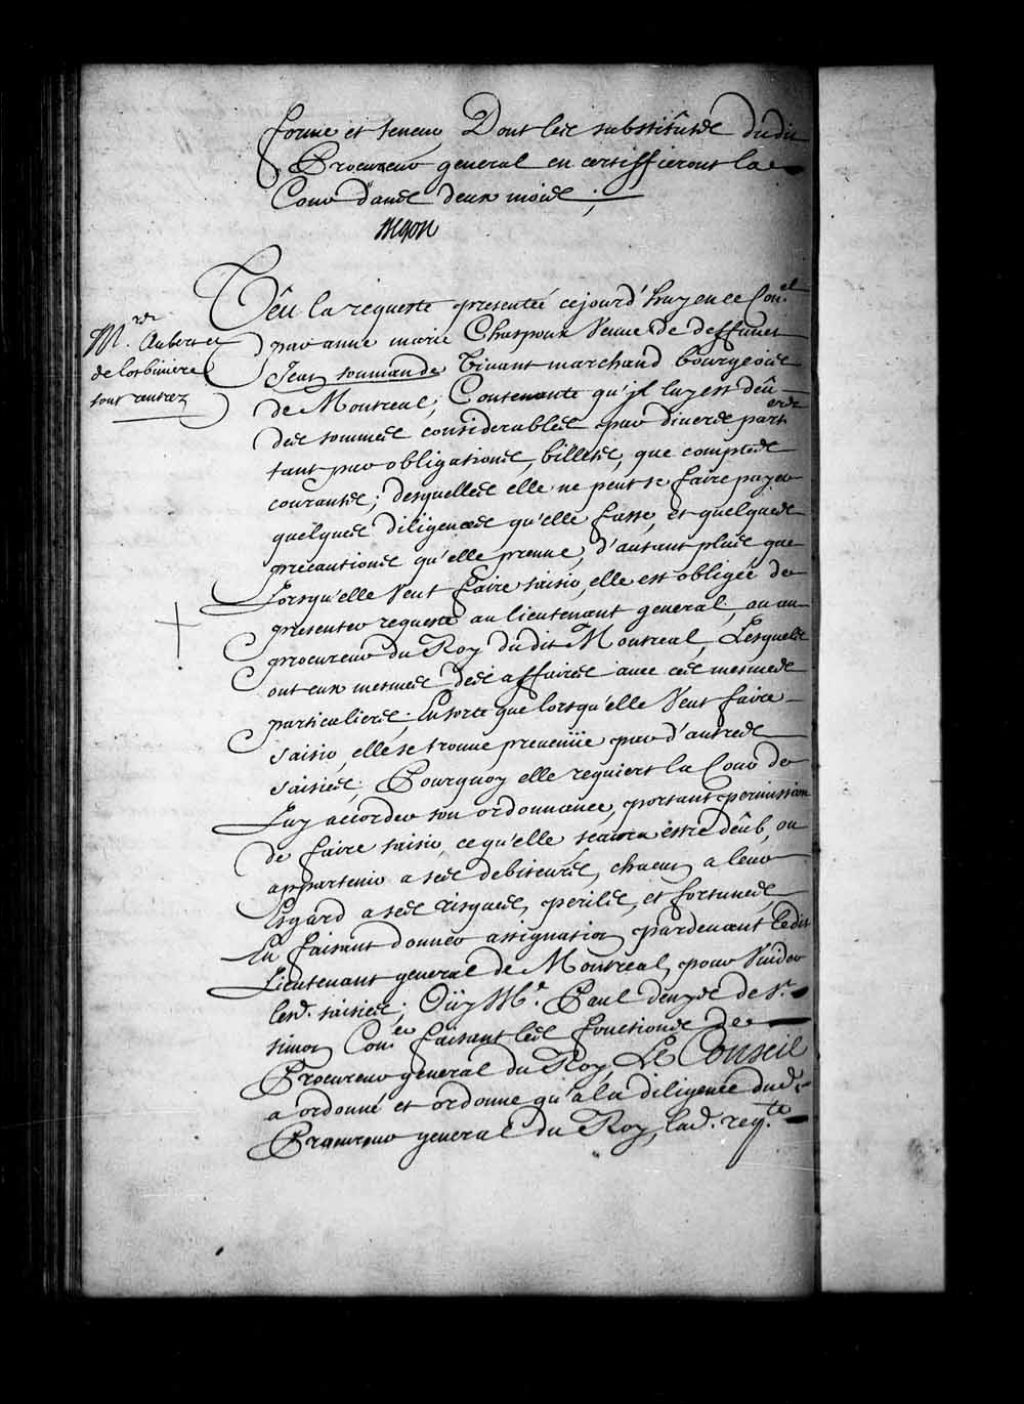 forme et teneur Dont les substituts dudit
Procureur general en certiffieront la
Cour dans deux mois;
Begon
Veu la requeste presentée cejourd'huy en ce Con.el
M.rs Aubert et
de Lotbiniere
sont rentrez
par anne marie Chaspoux Veuve de deffunct
Jean soumande Vivant marchand bourgeois
de Montreal; Contenante qu'jl luy est deû
des sommes considerables par divers part.ers
tant par obligations, billets, que comptes
courants; desquelles elle ne peut se faire payer
quelques diligences qu'elle fasse, et quelques
precautions qu'elle prenne, d'autant plus que
Lorsqu'elle Veut faire saisir, elle est obligée de
presenter requeste au lieutenant general, ou au
procureur du Roy dudit Montreal, Lesquels
ont eux mesmes des affaires avec ces mesmes
particuliers; Ensorte que lorsqu'elle Veut faire
saisir, elle se trouve prevenüe par d'autres
saisies; Pourquoy elle requiert la Cour de
Luy accorder son ordonnance, portant permission
de faire saisir, ce qu'elle scaura estre deûb, ou
appartenir a ses debiteurs, chacun a leur
Esgard a ses risques, perils, et fortunes,
En faisant donner assignation pardevant ledit
Lieutenant general de Montreal, pour Vuider
lesd. saisies; Oüy M.e Paul denys de S.t
simon Con.er faisant les fonctions de
Procureur general du Roy, Le Conseil
a ordonné et ordonne qu'a la diligence dud.
Procureur general du Roy, lad. req.te